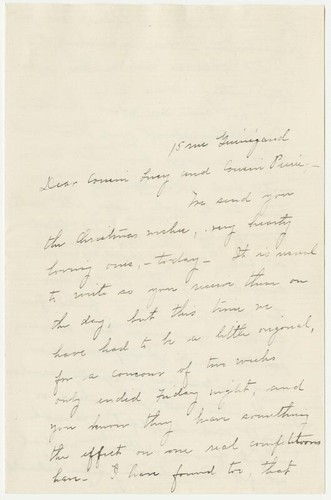 15 rue
Dear Cousin Lucy and Cousin
We send you
the Christmas wishes, very hearty
loving ones, - today - It is usual
to write so you receive them on
the day, but this time we
have had to be a little original,
for a concour of two weeks
only ended Friday night, and
you know they have something
the effect on one real competitions
have - I have found too, that